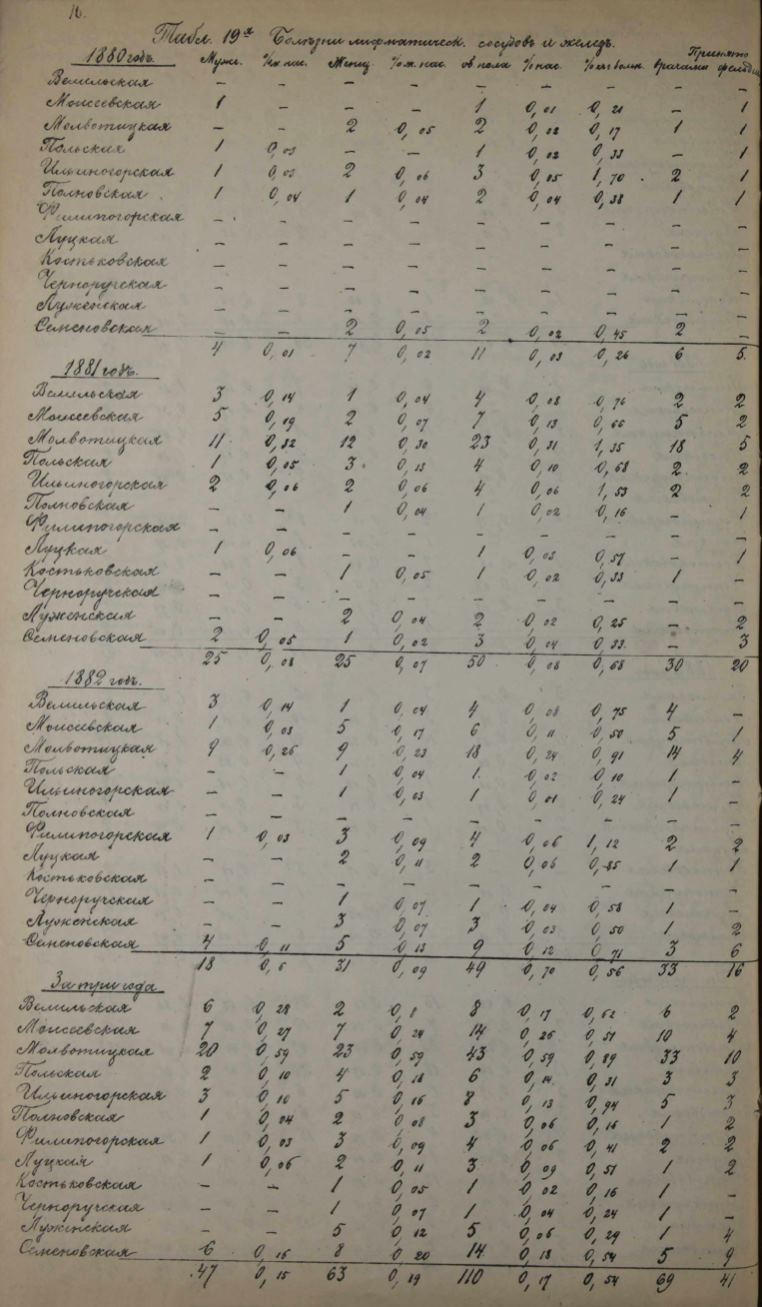 16.
Табл. 19я Болѣзни лимфатическ. сосудовъ и железъ.
Принято
1880 годъ. Мужч. % м нас. Женщ. % ж. нас. об пола % нас. % отъ больн. врачами фельдш.
Велильская — — — — — — — — —
Моисеевская 1 — — — 1 0,01 0,21 — 1
Молвотицкая — — 2 0,05 2 0,02 0,17 1 1
Польская 1 0,03 — — 1 0,02 0,33 — 1
Ильиногорская 1 0,03 2 0,06 3 0,05 1,70 2 1
Полновская 1 0,04 1 0,04 2 0,04 0,38 1 1
Филипогорская — — — — — — — — —
Луцкая — — — — — — — — —
Костьковская — — — — — — — — —
Черноручская — — — — — — — — —
Лужёнская — — — — — — — — —
Семеновская — — 2 0,05 2 0,02 0,45 2 —
4 0,01 7 0,02 11 0,03 0,26 6 5.
1881 годъ.
Велильская 3 0,14 1 0,04 4 0,08 0,76 2 2
Моисеевская 5 0,19 2 0,07 7 0,13 0,66 5 2
Молвотицкая 11 0,32 12 0,30 23 0,31 1,35 18 5
Польская 1 0,05 3 0,13 4 0,10 0,68 2 2
Ильиногорская 2 0,06 2 0,06 4 0,06 1,53 2 2
Полновская — — 1 0,04 1 0,02 0,16 — 1
Филипогорская — — — — — — — — —
Луцкая 1 0,06 — — 1 0,03 0,57 — 1
Костьковская — — 1 0,05 1 0,02 0,33 1 —
Черноручская — — — — — — — — —
Луженская — — 2 0,04 2 0,02 0,25 — 2
Семеновская 2 0,05 1 0,02 3 0,04 0,33 — 3
25 0,08 25 0,07 50 0,08 0,68 30 20
1882 годъ.
Велильская 3 0,14 1 0,04 4 0,08 0,75 4 —
Моисеевская 1 0,03 5 0,17 6 0,11 0,50 5 1
Молвотицкая 9 0,26 9 0,23 18 0,24 0,91 14 4
Польская — — 1 0,04 1 0,02 0,10 1 —
Ильиногорская — — 1 0,03 1 0,01 0,24 1 —
Полновская — — — — — — — — —
Филипогорская 1 0,03 3 0,09 4 0,06 1,12 2 2
Луцкая — — 2 0,11 2 0,06 0,85 1 1
Костьковская — — — — — — — — —
Черноручская — — 1 0,07 1 0,04 0,58 1 —
Луженская — — 3 0,07 3 0,03 0,50 1 2
Семеновская 4 0,11 5 0,13 9 0,12 0,71 3 6
18 0,6 31 0,09 49 0,70 0,56 33 16
За три года
Велильская 6 0,28 2 0,8 8 0,17 0,62 6 2
Моисеевская 7 0,27 7 0,24 14 0,26 0,51 10 4
Молвотицкая 20 0,59 23 0,59 43 0,59 0,89 33 10
Польская 2 0,10 4 0,18 6 0,14 0,31 3 3
Ильиногорская 3 0,10 5 0,16 8 0,13 0,94 5 3
Полновская 1 0,04 2 0,08 3 0,06 0,16 1 2
Филипогорская 1 0,03 3 0,09 4 0,06 0,41 2 2
Луцкая 1 0,06 2 0,11 3 0,09 0,51 1 2
Костьковская — — 1 0,05 1 0,02 0,16 1 —
Черноручская — — 1 0,07 1 0,04 0,24 1 —
Луженская — — 5 0,12 5 0,06 0,29 1 4
Семеновская 6 0,16 8 0,20 14 0,18 0,54 5 9
47 0,15 63 0,19 110 0,17 0,54 69 41